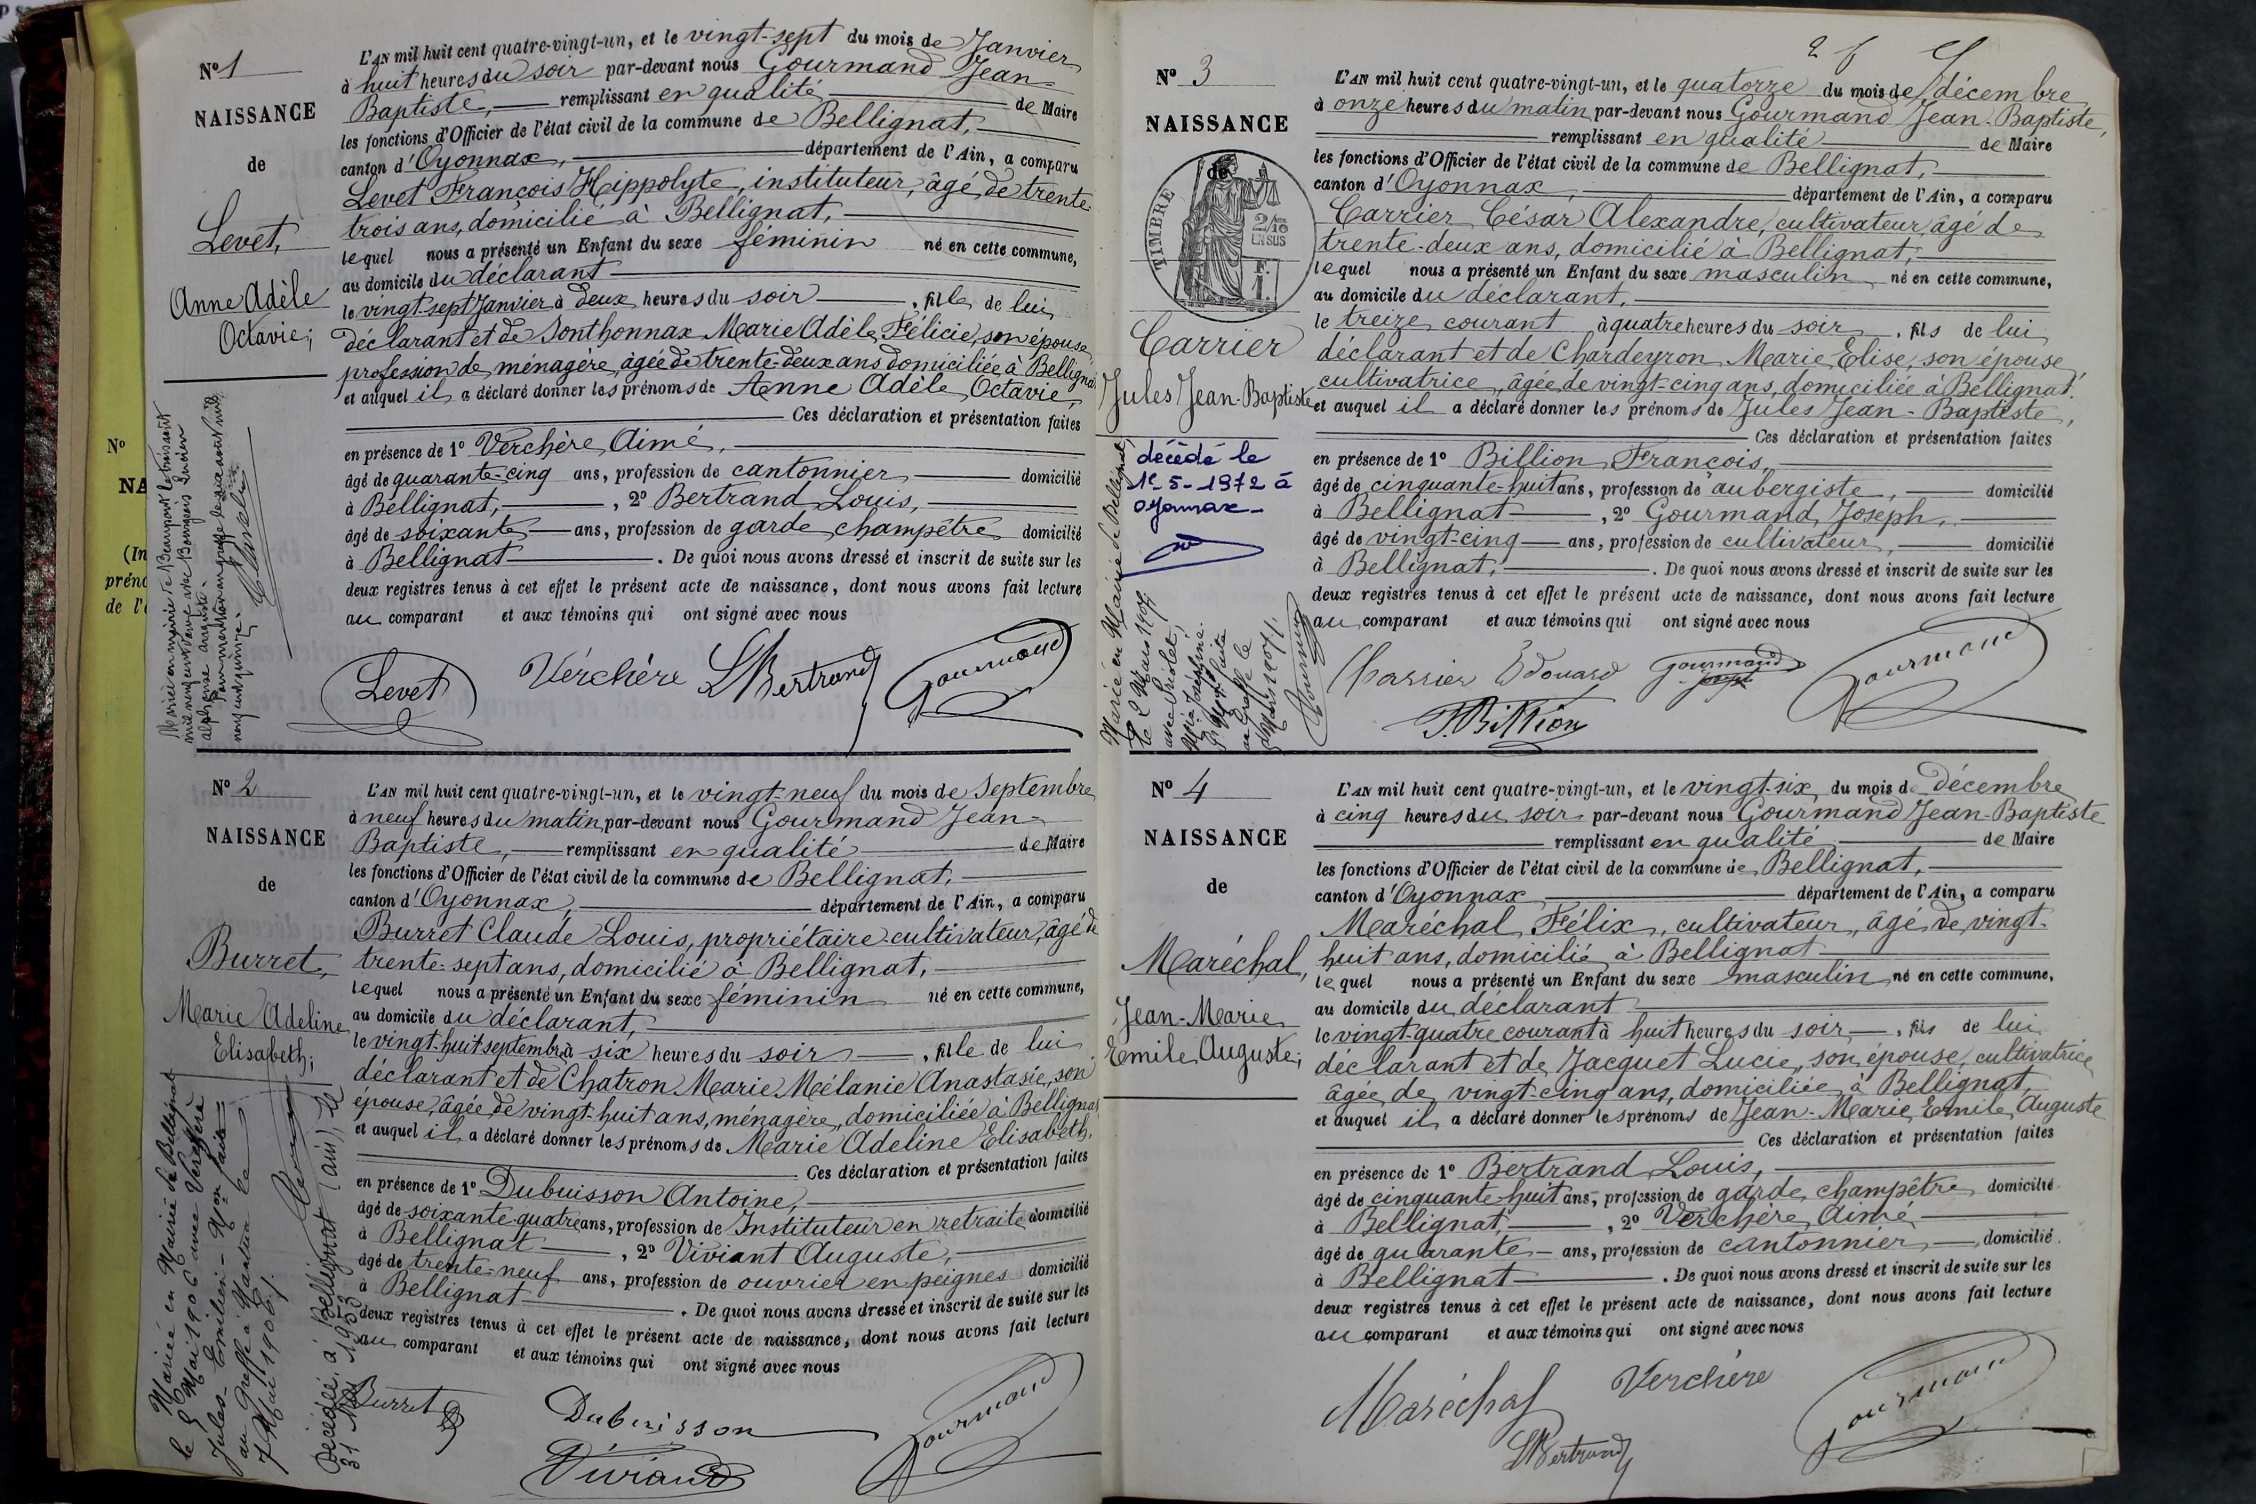 N° 1
NAISSANCE
de
Levet,
Anne Adèle
Octavie;
L'AN mil huit cent quatre-vingt-un, et le vingt-sept du mois de Janvier
à huit heures du soir par-devant nous Gourmand Jean-
Baptiste, remplissant en qualité de Maire
les fonctions d'Officier de l'état civil de la commune de Bellignat,
canton d'Oyonnax, département de l'Ain, a comparu
Levet François Hippolyte, instituteur, âgé de trente-
trois ans, domicilié à Bellignat,
lequel nous a présenté un Enfant du sexe féminin né en cette commune,
au domicile du déclarant
le vingt-sept Janvier à deux heures du soir, fille de lui
déclarant et de Sonthonnax Marie Adèle Félicie, son épouse,
profession de ménagère, âgée de trente-deux ans domiciliée à Bellignat
et auquel il a déclaré donner les prénoms de Anne Adèle Octavie,
Ces déclaration et présentation faites
en présence de 1° Verchère Aimé,
âgé de quarante-cinq ans, profession de cantonnier domicilié
à Bellignat, , 2° Bertrand Louis,
âgé de soixante ans, profession de garde champêtre domicilié
à Bellignat . De quoi nous avons dressé et inscrit de suite sur les
deux registres tenus à cet effet le présent acte de naissance, dont nous avons fait lecture
au comparant et aux témoins qui ont signé avec nous
Levet Verchère LBertrand Gourmand
N° 2
NAISSANCE
de
Burret,
Marie Adeline
Elisabeth;
Mariée en Mairie de Bellignat
le 5 Mai 1906 avec Verchère
Jules-Emilien - Mon faite
au Greffe à Nantua le
7 Mai 1906.
Décédée à Bellignat (ain), le
31 Mai 1953
L'AN mil huit cent quatre-vingt-un, et le vingt-neuf du mois de Septembre
à neuf heures du matin, par-devant nous Gourmand Jean-
Baptiste, remplissant en qualité de Maire
les fonctions d'Officier de l'état civil de la commune de Bellignat,
canton d'Oyonnax, département de l'Ain, a comparu
Burret Claude Louis, propriétaire cultivateur, âgé de
trente-sept ans, domicilié à Bellignat,
lequel nous a présenté un Enfant du sexe féminin né en cette commune,
au domicile du déclarant,
le vingt-huit septembre à six heures du soir , fille de lui
déclarant et de Chatron Marie Mélanie Anastasie, son
épouse, âgée de vingt-huit ans, ménagère, domiciliée à Bellignat
et auquel il a déclaré donner les prénoms de Marie Adeline Elisabeth,
Ces déclaration et présentation faites
en présence de 1° Dubuisson Antoine,
âgé de soixante-quatre ans, profession de Instituteur en retraite domicilié
à Bellignat , 2° Viviant Auguste,
âgé de trente-neuf ans, profession de ouvrier en peignes domicilié
à Bellignat . De quoi nous avons dressé et inscrit de suite sur les
deux registres tenus à cet effet le présent acte de naissance, dont nous avons fait lecture
au comparant et aux témoins qui ont signé avec nous
Burret Dubuisson Gourmand
Viviand
N° 3
NAISSANCE
de
TIMBRE
2/10
EN SUS
F.
1.
Carrier
Jules Jean-Baptiste
décédé le
1e-5-1972 à
oyonnax-
Marié en Mairie de Bellignat,
le 2 Mars 1907
L'AN mil huit cent quatre-vingt-un, et le quatorze du mois de décembre
à onze heures du matin, par-devant nous Gourmand Jean-Baptiste,
remplissant en qualité de Maire
les fonctions d'Officier de l'état civil de la commune de Bellignat,
canton d'Oyonnax, département de l'Ain, a comparu
Carrier César Alexandre, cultivateur, âgé de
trente-deux ans, domicilié à Bellignat,
lequel nous a présenté un Enfant du sexe masculin né en cette commune,
au domicile du déclarant,
le treize courant à quatre heures du soir , fils de lui
déclarant et de Chardeyron Marie Elise, son épouse,
cultivatrice, âgée de vingt-cinq ans, domiciliée à Bellignat,
et auquel il a déclaré donner les prénoms de Jules Jean-Baptiste,
Ces déclaration et présentation faites
en présence de 1° Billion François,
âgé de cinquante-huit ans, profession de aubergiste, domicilié
à Bellignat , 2° Gourmand Joseph,
âgé de vingt-cinq ans, profession de cultivateur, domicilié
à Bellignat, . De quoi nous avons dressé et inscrit de suite sur les
deux registres tenus à cet effet le présent acte de naissance, dont nous avons fait lecture
au comparant et aux témoins qui ont signé avec nous
Carrier Edouard Gourmand Joseph Gourmand
F. Billion
N° 4
NAISSANCE
de
Maréchal,
Jean-Marie
Emile Auguste;
L'AN mil huit cent quatre-vingt-un, et le vingt-six du mois de décembre
à cinq heures du soir par-devant nous Gourmand Jean-Baptiste
remplissant en qualité de Maire
les fonctions d'Officier de l'état civil de la commune de Bellignat,
canton d'Oyonnax département de l'Ain, a comparu
Maréchal Félix, cultivateur, âgé de vingt-
huit ans, domicilié à Bellignat
lequel nous a présenté un Enfant du sexe masculin né en cette commune,
au domicile du déclarant
le vingt-quatre courant à huit heures du soir , fils de lui
déclarant et de Jacquet Lucie, son épouse, cultivatrice
âgée de vingt-cinq ans, domiciliée à Bellignat,
et auquel il a déclaré donner les prénoms de Jean-Marie Emile Auguste
Ces déclaration et présentation faites
en présence de 1° Bertrand Louis,
âgé de cinquante-huit ans, profession de garde champêtre domicilié
à Bellignat, , 2° Verchère Aimé
âgé de quarante ans, profession de cantonnier, domicilié
à Bellignat . De quoi nous avons dressé et inscrit de suite sur les
deux registres tenus à cet effet le présent acte de naissance, dont nous avons fait lecture
au comparant et aux témoins qui ont signé avec nous
Maréchal Verchère Gourmand
LBertrand